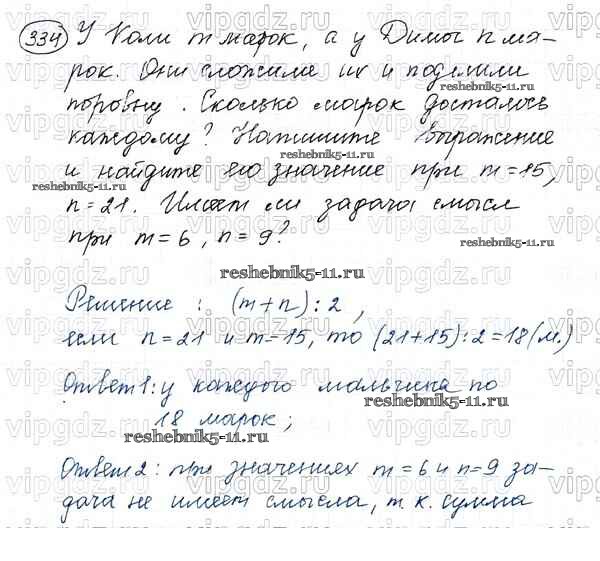 334 У Коли m марок, а у Димы n ма-
рок. Они сложили их и поделили
поровну. Сколько марок досталось
каждому? Напишите выражение
и найдите его значение при m=15,
n=21. Имеет ли задача смысл
при m=6, n=9?
Решение : (m+n):2,
если n=21 и m=15, то (21+15):2=18(м.)
Ответ 1: у каждого мальчика по
18 марок;
Ответ 2: при значениях m=6 и n=9 за-
дача не имеет смысла, т.к. сумма
vipgdz.ru
reshebnik5-11.ru